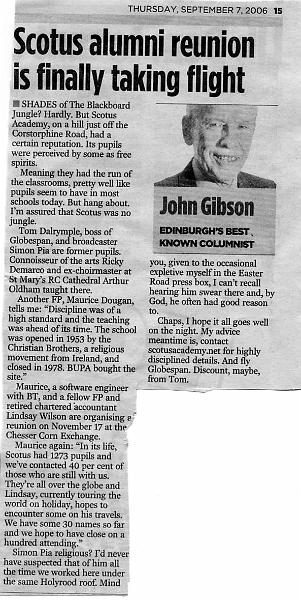 THURSDAY, SEPTEMBER 7, 2006 15
Scotus alumni reunion
is finally taking flight
■ SHADES of The Blackboard
Jungle? Hardly. But Scotus
Academy, on a hill just off the
Corstorphine Road, had a
certain reputation. Its pupils
were perceived by some as free
spirits.
Meaning they had the run of
the classrooms, pretty well like
pupils seem to have in most
schools today. But hang about.
I'm assured that Scotus was no
jungle.
Tom Dalrymple, boss of
Globespan, and broadcaster
Simon Pia are former pupils.
Connoisseur of the arts Ricky
Demarco and ex-choirmaster at
St Mary's RC Cathedral Arthur
Oldham taught there.
Another FP, Maurice Dougan,
tells me: "Discipline was of a
high standard and the teaching
was ahead of its time. The school
was opened in 1953 by the
Christian Brothers, a religious
movement from Ireland, and
closed in 1978. BUPA bought the
site."
Maurice, a software engineer
with BT, and a fellow FP and
retired chartered accountant
Lindsay Wilson are organising a
reunion on November 17 at the
Chesser Corn Exchange.
Maurice again: "In its life,
Scotus had 1273 pupils and
we've contacted 40 per cent of
those who are still with us.
They're all over the globe and
Lindsay, currently touring the
world on holiday, hopes to
encounter some on his travels.
We have some 30 names so far
and we hope to have close on a
hundred attending."
Simon Pia religious? I'd never
have suspected that of him all
the time we worked here under
the same Holyrood roof. Mind
John Gibson
EDINBURGH'S BEST
KNOWN COLUMNIST
you, given to the occasional
expletive myself in the Easter
Road press box, I can't recall
hearing him swear there and, by
God, he often had good reason
to.
Chaps, I hope it all goes well
on the night. My advice
meantime is, contact
scotusacademy.net for highly
disciplined details. And fly
Globespan. Discount, maybe,
from Tom.